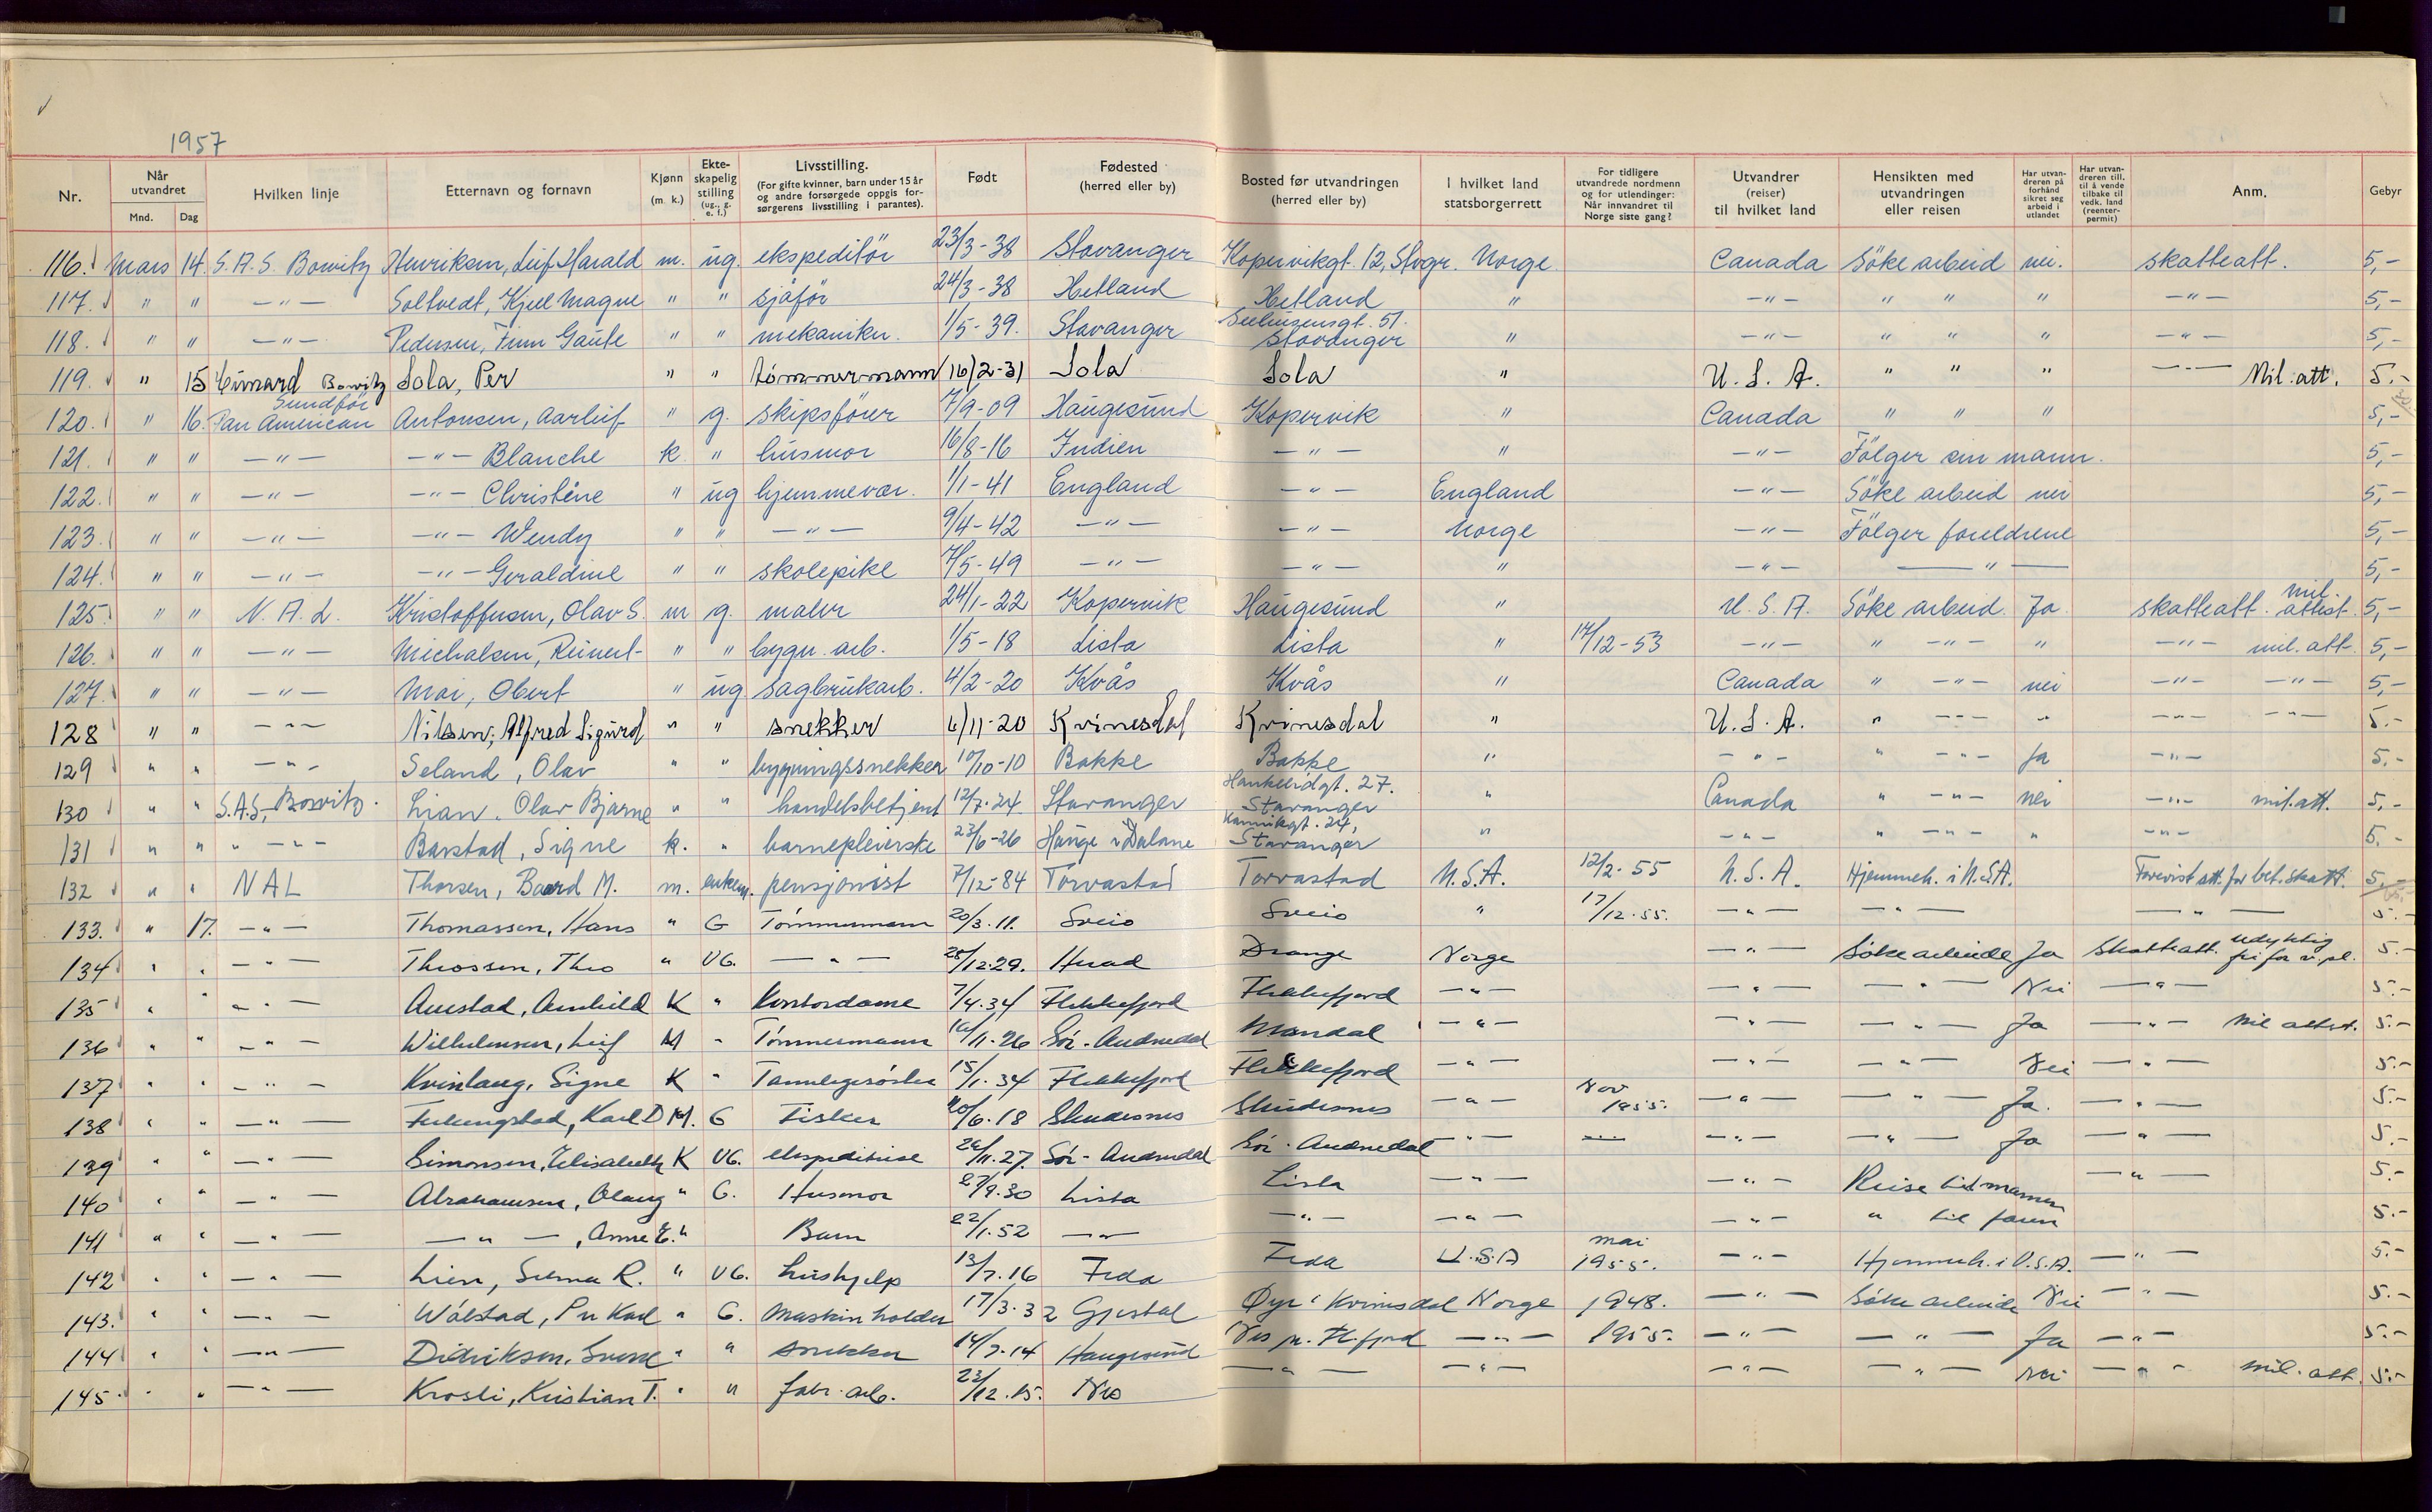 1957
Nr. Når utvandret Mnd. Dag Hvilken linje Etternavn og fornavn Kjønn (m. k.) Ekteskapelig stilling (ug., g. e. f.) Livsstilling. (For gifte kvinner, barn under 15 år og andre forsørgede oppgis forsørgerens livsstilling i parantes). Født Fødested (herred eller by) Bosted før utvandringen (herred eller by) I hvilket land statsborgerrett For tidligere utvandrede nordmenn og for utlendinger: Når innvandret til Norge siste gang? Utvandrer (reiser) til hvilket land Hensikten med utvandringen eller reisen Har utvandreren på forhånd sikret seg arbeid i utlandet Har utvandreren till. til å vende tilbake til vedk. land (reenterpermit) Anm. Gebyr
116. Mars 14. S.A.S. Bowitz Henriksen, Leif Harald m. ug. ekspeditör 23/3-38 Stavanger Kopervikgt. 12, Stvgr. Norge Canada Söke arbeid nei. skatteatt. 5,-
117. " " -"- Soltvedt, Kjell Magne " " sjåför 24/3-38 Hetland Hetland " -"- " " " -"- 5,-
118. " " -"- Pedersen, Finn Gaute " " mekaniker. 1/5-39. Stavanger Seehusensgt. 51. Stavanger " -"- " " " -"- 5,-
119. " 15 Cunard Bowitz Sola, Per " " tömmermann 16/2-31 Sola Sola " U.S.A. " " " -"- Mil. att. 5.-
120. " 16. Pan American Sundför Antonsen, Aarleif " g. skipsförer 7/9-09 Haugesund Kopervik " Canada " " " 5,-
121. " " -"- -"- Blanche k " husmor 16/8-16 Indien -"- " -"- Fölger sin mann. 5,-
122. " " -"- -"- Christine " ug hjemmevær. 1/1-41 England -"- England -"- Söke arbeid nei 5,-
123. " " -"- -"- Wendy " " -"- 9/4-42 -"- -"- Norge -"- Fölger foreldrene 5,-
124. " " -"- -"- Geraldine " " skolepike 7/5-49 -"- -"- " -"- -"- 5,-
125. " " N.A.L. Kristoffersen, Olav S. m g. maler 24/1-22 Kopervik Haugesund " U.S.A. Söke arbeid. Ja. skatteatt. mil. attest. 5,-
126. " " -"- Michalsen, Reinert " " bygn. arb. 1/5-18 Lista Lista " 14/12-53 -"- " -"- " -"- mil. att. 5,-
127. " " -"- Moi, Obert " ug sagbrukarb. 4/2-20 Kvås Kvås " Canada " -"- nei -"- -"- 5,-
128 " " -"- Nilsen, Alfred Sigurd " " snekker 6/11-20 Kvinesdal Kvinesdal " U.S.A. " -"- " -"- -"- 5.-
129 " " -"- Seland, Olav " " bygningssnekker 10/10-10 Bakke Bakke " -"- " -"- Ja -"- 5.-
130 " " S.A.S., Bowitz. Lian, Olav Bjarne " " handelsbetjent 12/7-24 Stavanger Haukelidgt. 27. Stavanger " Canada " -"- nei -"- mil. att. 5.-
131 " " " -"- Barstad, Signe k. " barnepleierske 23/6-26 Hauge i Dalane Kannikgt. 24, Stavanger " -"- " -"- " -"- 5.-
132 " " NAL Thorsen, Baard M. m. enkem. pensjonist 7/12-84 Torvastad Torvastad U.S.A. 12/2-55 U.S.A. Hjemmeh. i U.S.A. Forevist att. for bet. skatt. 5,-
133. " 17. -"- Thomassen, Hans " G Tömmermann 20/3.11. Sveio Sveio " 17/12.55. -"- -"- -"- 5.-
134 " " -"- Theo " UG. -"- 28/12.29. Norge -"- Söke arbeide Ja Skatteatt. udyktig 5.-
135 " " -"- K " Kontordame 7/4.34 Flekkefjord Flekkefjord -"- -"- -"- Nei -"- 5.-
136 " " -"- Wilhelmsen, Leif M " Tömmermann 10/11.26 Sör-Audnedal Mandal -"- -"- -"- Ja -"- Mil attest. 5.-
137 " " -"- Kvinlaug, Signe K " Tannlegesöster 15/1.34 Flekkefjord Flekkefjord -"- -"- -"- Nei -"- 5.-
138 " " -"- Karl D M. G Fisker 20/6.18 Skudesnes Skudesnes -"- Nov 1955. -"- -"- Ja. -"- 5.-
139 " " -"- Simonsen, Elisabeth K UG. ekspeditrise 26/11.27. Sör-Audnedal Sör-Audnedal -"- -"- -"- Ja -"- 5.-
140 " " -"- Abrahamsen, Olaug " G. Husmor 27/9.30 Lista Lista -"- -"- Reise til mannen -"- 5.-
141 " " -"- -"-, Anne E. " Barn 22/1.52 -"- -"- -"- -"- " til faren 5.-
142 " " -"- Lien, Selma R. " UG. Hushjelp 13/7.16 Feda Feda U.S.A mai 1955. -"- Hjemmeh. i U.S.A. -"- 5.-
143. " " -"- Wålstad, Per Karl " G. Maskinholder 17/3.32 Gjestal Øye i Kvinesdal Norge 1948. -"- Söke arbeide Nei -"- 5.-
144 " " -"- Didriksen, Sverre " " snekker 14/7.14 Haugesund Nes pr. Fl.fjord -"- 1955. -"- -"- Ja -"- 5.-
145. " " -"- Krosli, Kristian T. " " fabr. arb. 23/12.15. Nes -"- -"- -"- -"- nei -"- mil. att. 5.-